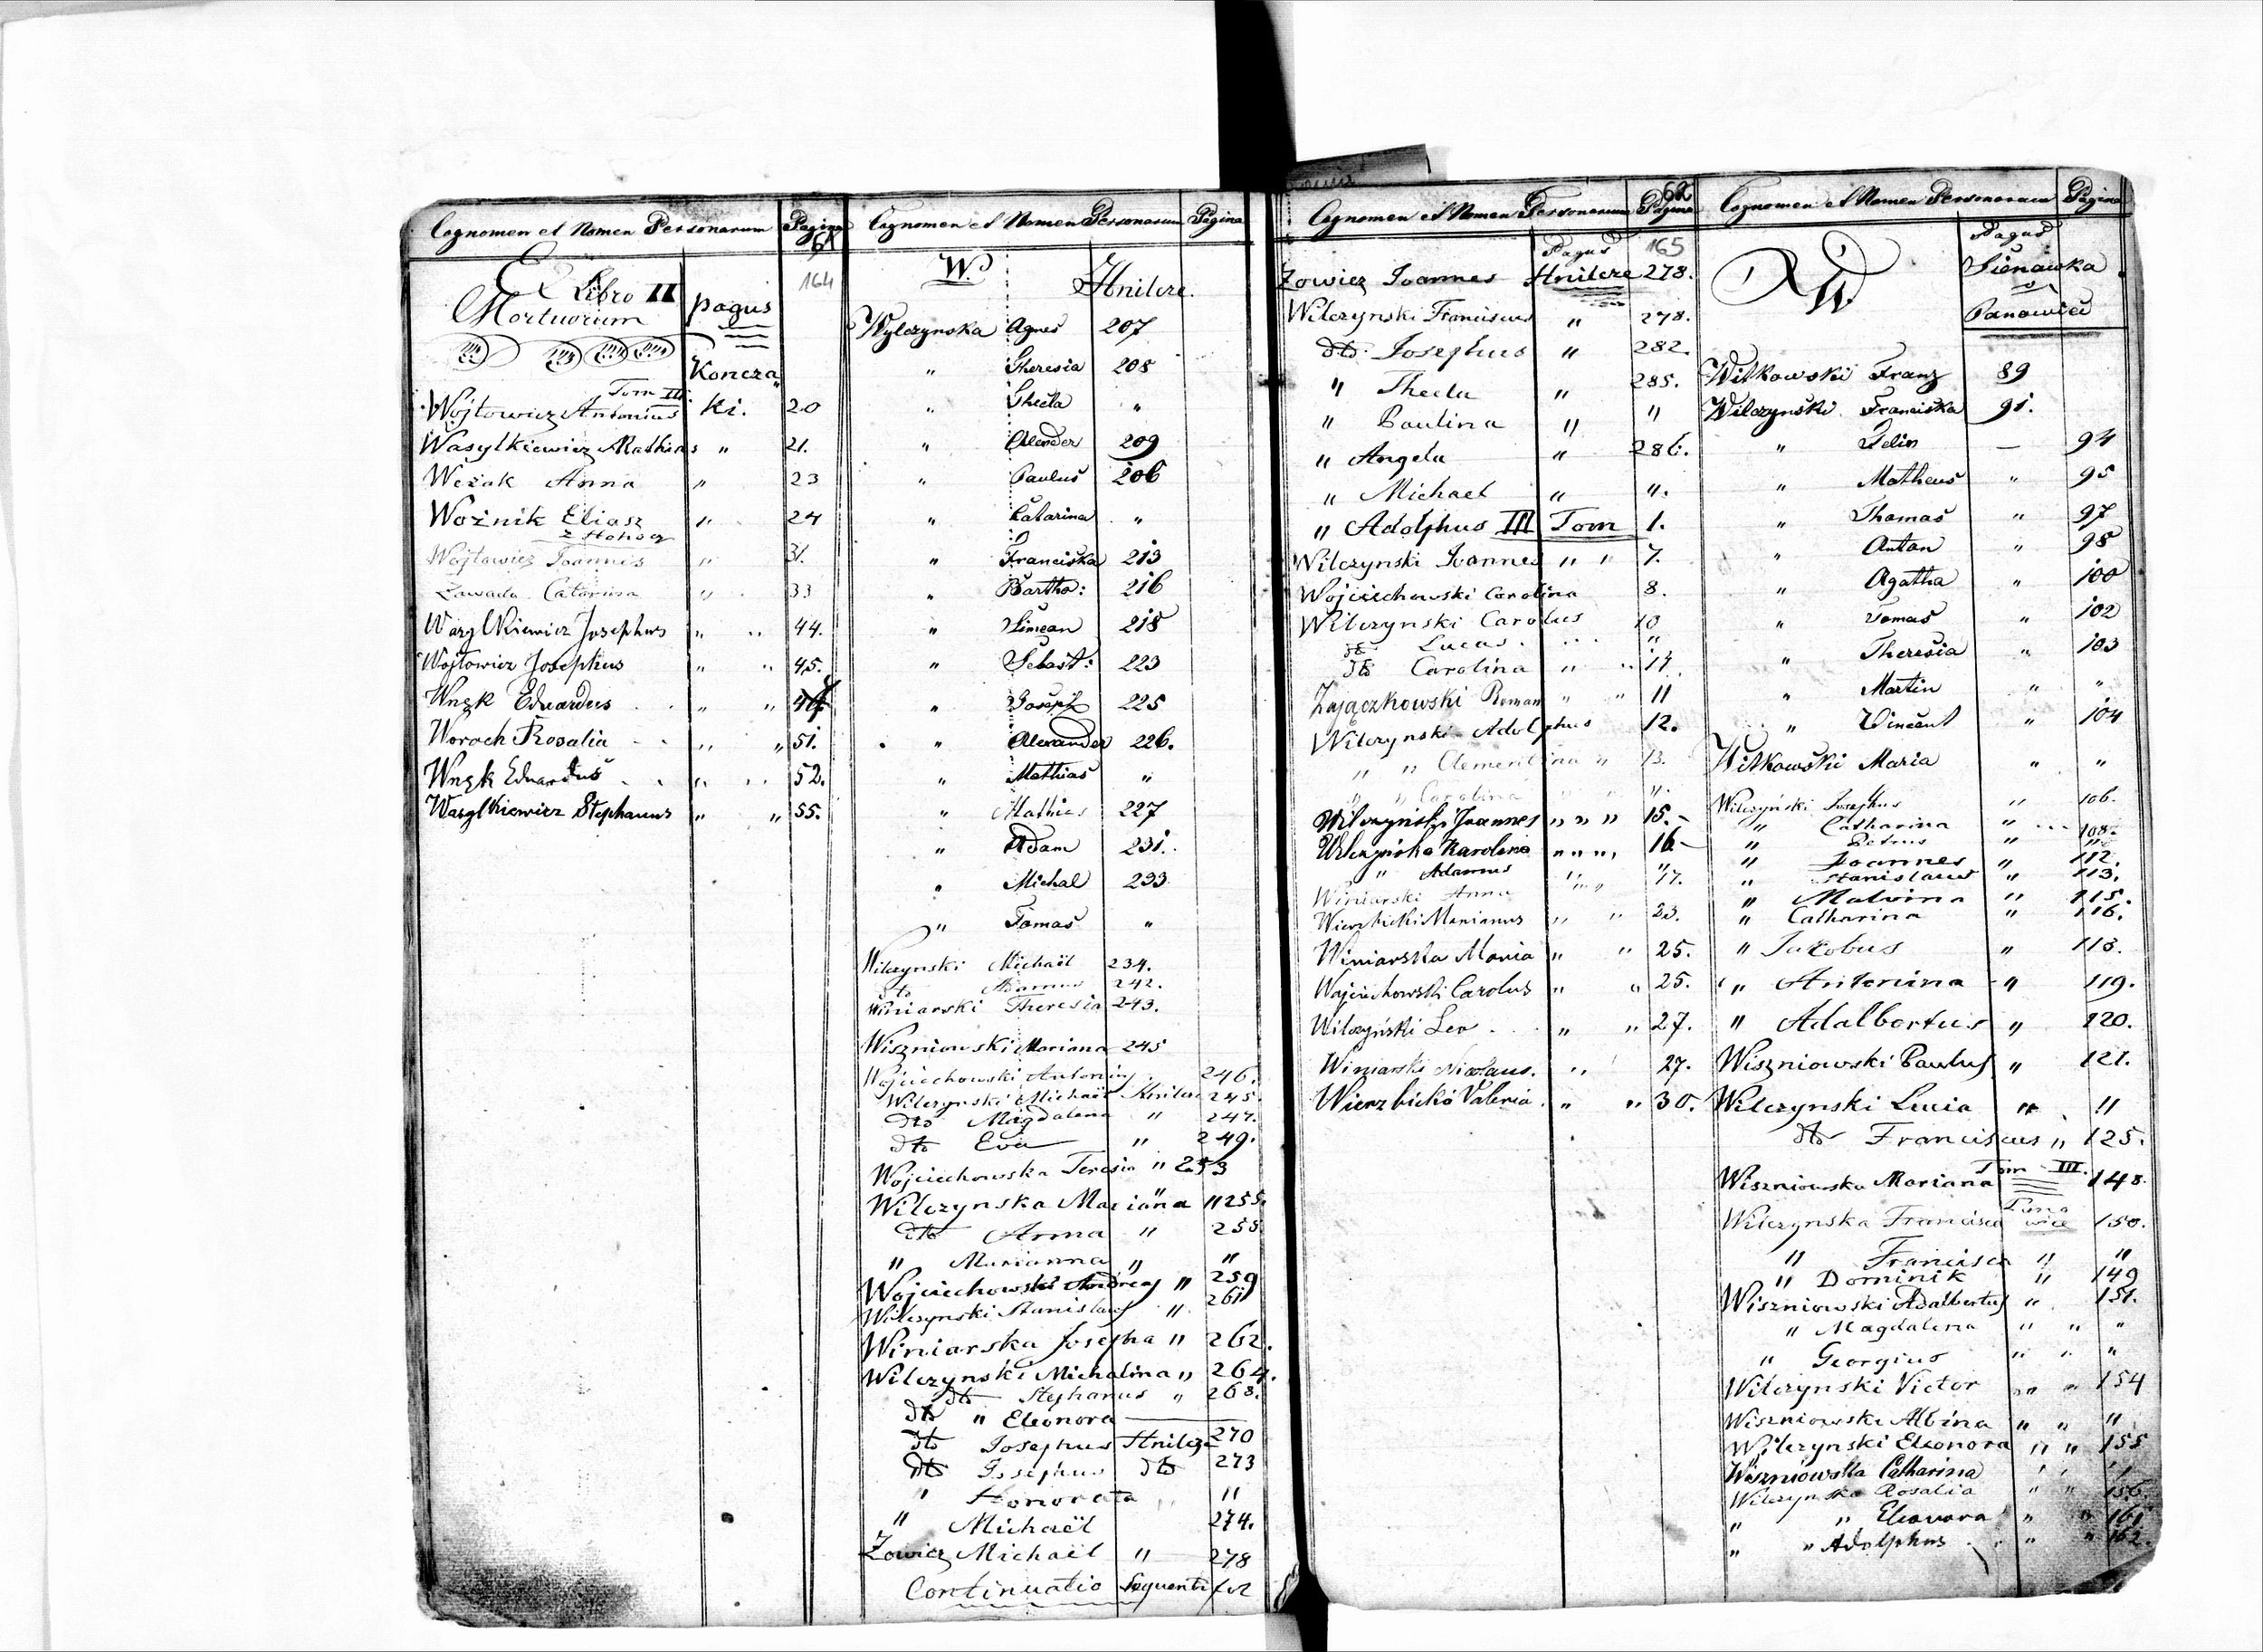 Cognomen et Nomen Personarum Pagina
61
Ex Libro II pagus 164
Mortuorum
Koncza
Tom III
Wojtowicz Antonius ki. 20
Wasylkiewicz Mathias " 21.
Weżak Anna " 23
Woźnik Eliasz " 24
Wojtowicz Joannis " 31.
Zawada Catarina " 33
Wasylkiewicz Josephus " " 44.
Wojtowicz Josephus " " 45.
Wnęk Eduardus " "
Woroch Rosalia " " 51.
Wnęk Eduardus " " 52.
Wasylkiewicz Stephanus " " 55.
Cognomen et Nomen Personarum Pagina
W. Hnilcze.
Wylczynska Agnes 207
" Theresia 208
" Thecla "
" 209
" Paulus 206
" Catarina "
" Franciska 213
" Bartho: 216
" Simean 218
" Sebast: 223
" Joseph 225
" Alexander 226.
" Mathias "
" Mathias 227
" Adam 231.
" Michal 233
" Tomas "
Wilczynski Michaël 234.
dto Adamus 242.
Winiarski Theresia 243.
Wiszniowski Mariana 245
Wojciechowski Antonius 246.
Wilczynski Michaël Hnilcze 245.
dto Magdalena " 247.
dto Eva " 249.
Wojciechowska Teresia " 253
Wilczynska Mariana " 255.
dto Anna " 255
" Marianna " "
Wojciechowski Andreas " 259
Wilczynski Stanislaus " 261
Winiarska Josepha " 262.
Wilczynski Michalina " 264.
dto Stephanus " 268.
dto " Eleonora
dto Josephus Hnilcze 270
dto Josephus dto 273
" Honorata " "
" Michaël 274.
Zowicz Michaël " 278
Continuatio sequenti fol
Cognomen et Nomen Personarum Pagina
62
Pagus 165
Zowicz Joannes Hnilcze 278.
Wilczynski Franciscus " 278.
dto. Josephus " 282.
" Thecla " 285.
" Paulina " "
" Angela " 286.
" Michael " ".
" Adolphus III Tom 1.
Wilczynski Joannes " " 7.
Wojciechowski Carolina 8.
Wilczynski Carolus 10
dto Lucas "
dto Carolina " "
Zajączkowski Roman " " 11
Wilczynski Adolphus 12.
" " Clementina " 13.
" " Carolina " ".
Wilczyński Joannes " " " 15.-
Wilczyńska Karolina " " " 16-
" Adamus " "
Winiarski Anna " " 17.
Wierzbicki Marianus " " 23.
Winiarska Maria " " 25.
Wojciechowski Carolus " " 25.
Wilczyński Leo " " 27.
Winiarski Nicolaus. " 27.
Wierzbicki Valeria " " 30.
Cognomen et Nomen Personarum Pagina
W Pagus
Sienawka
Panowice
Witkowski Franz 89
Wilczyński Franciska 91.
" Felix — 94
" Matheus " 95
" Thomas " 97
" Antan " 98
" Agatha " 100
" Tomas " 102
" Theresia " 103
" Martin " "
" Vincent " 104
Witkowski Maria " "
Wilczyński Josephus " 106.
" Catharina " 108.
" Petrus " "
" Joannes " 112.
" Stanislaus " 113.
" Malvina " 115.
" Catharina " 116.
" Jacobus " 118.
" Antonina " 119.
" Adalbertus " 120.
Wiszniowski Paulus " 121.
Wilczynski Lucia " "
dto Franciscus " 125.
Tom III.
Wiszniowska Mariana 148.
Wilczynska Francisca 150.
" Francisca " "
" Dominik " 149
Wiszniowski Adalbertus " 151.
" Magdalena " " "
" Georgius " " "
Wilczynski Victor " " 154
Wiszniowski Albina " " "
Wilczynski Eleonora " " 155
Wiszniowska Catharina " " "
Wilczynska Rosalia " " 156.
" " Eleonora " " 161
" " Adolphus " " 162.